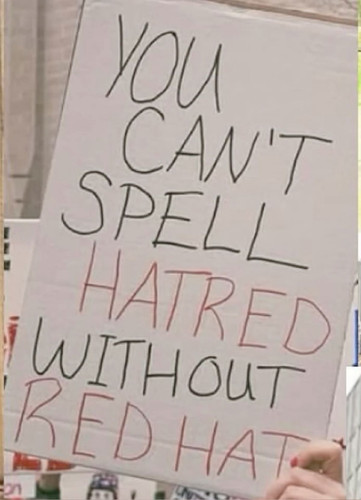 YOU
CAN'T
SPELL
HATRED
WITHOUT
RED HAT